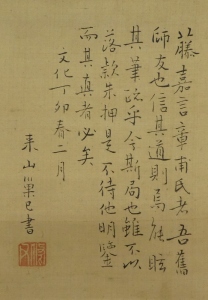 藤嘉言章甫民者吾舊
師友也信其道則焉能眩
其筆跡乎今斯局也雖不以
落款朱押是不待他明鑒
而其真者必矣
文化丁卯春二月
来山巣已書